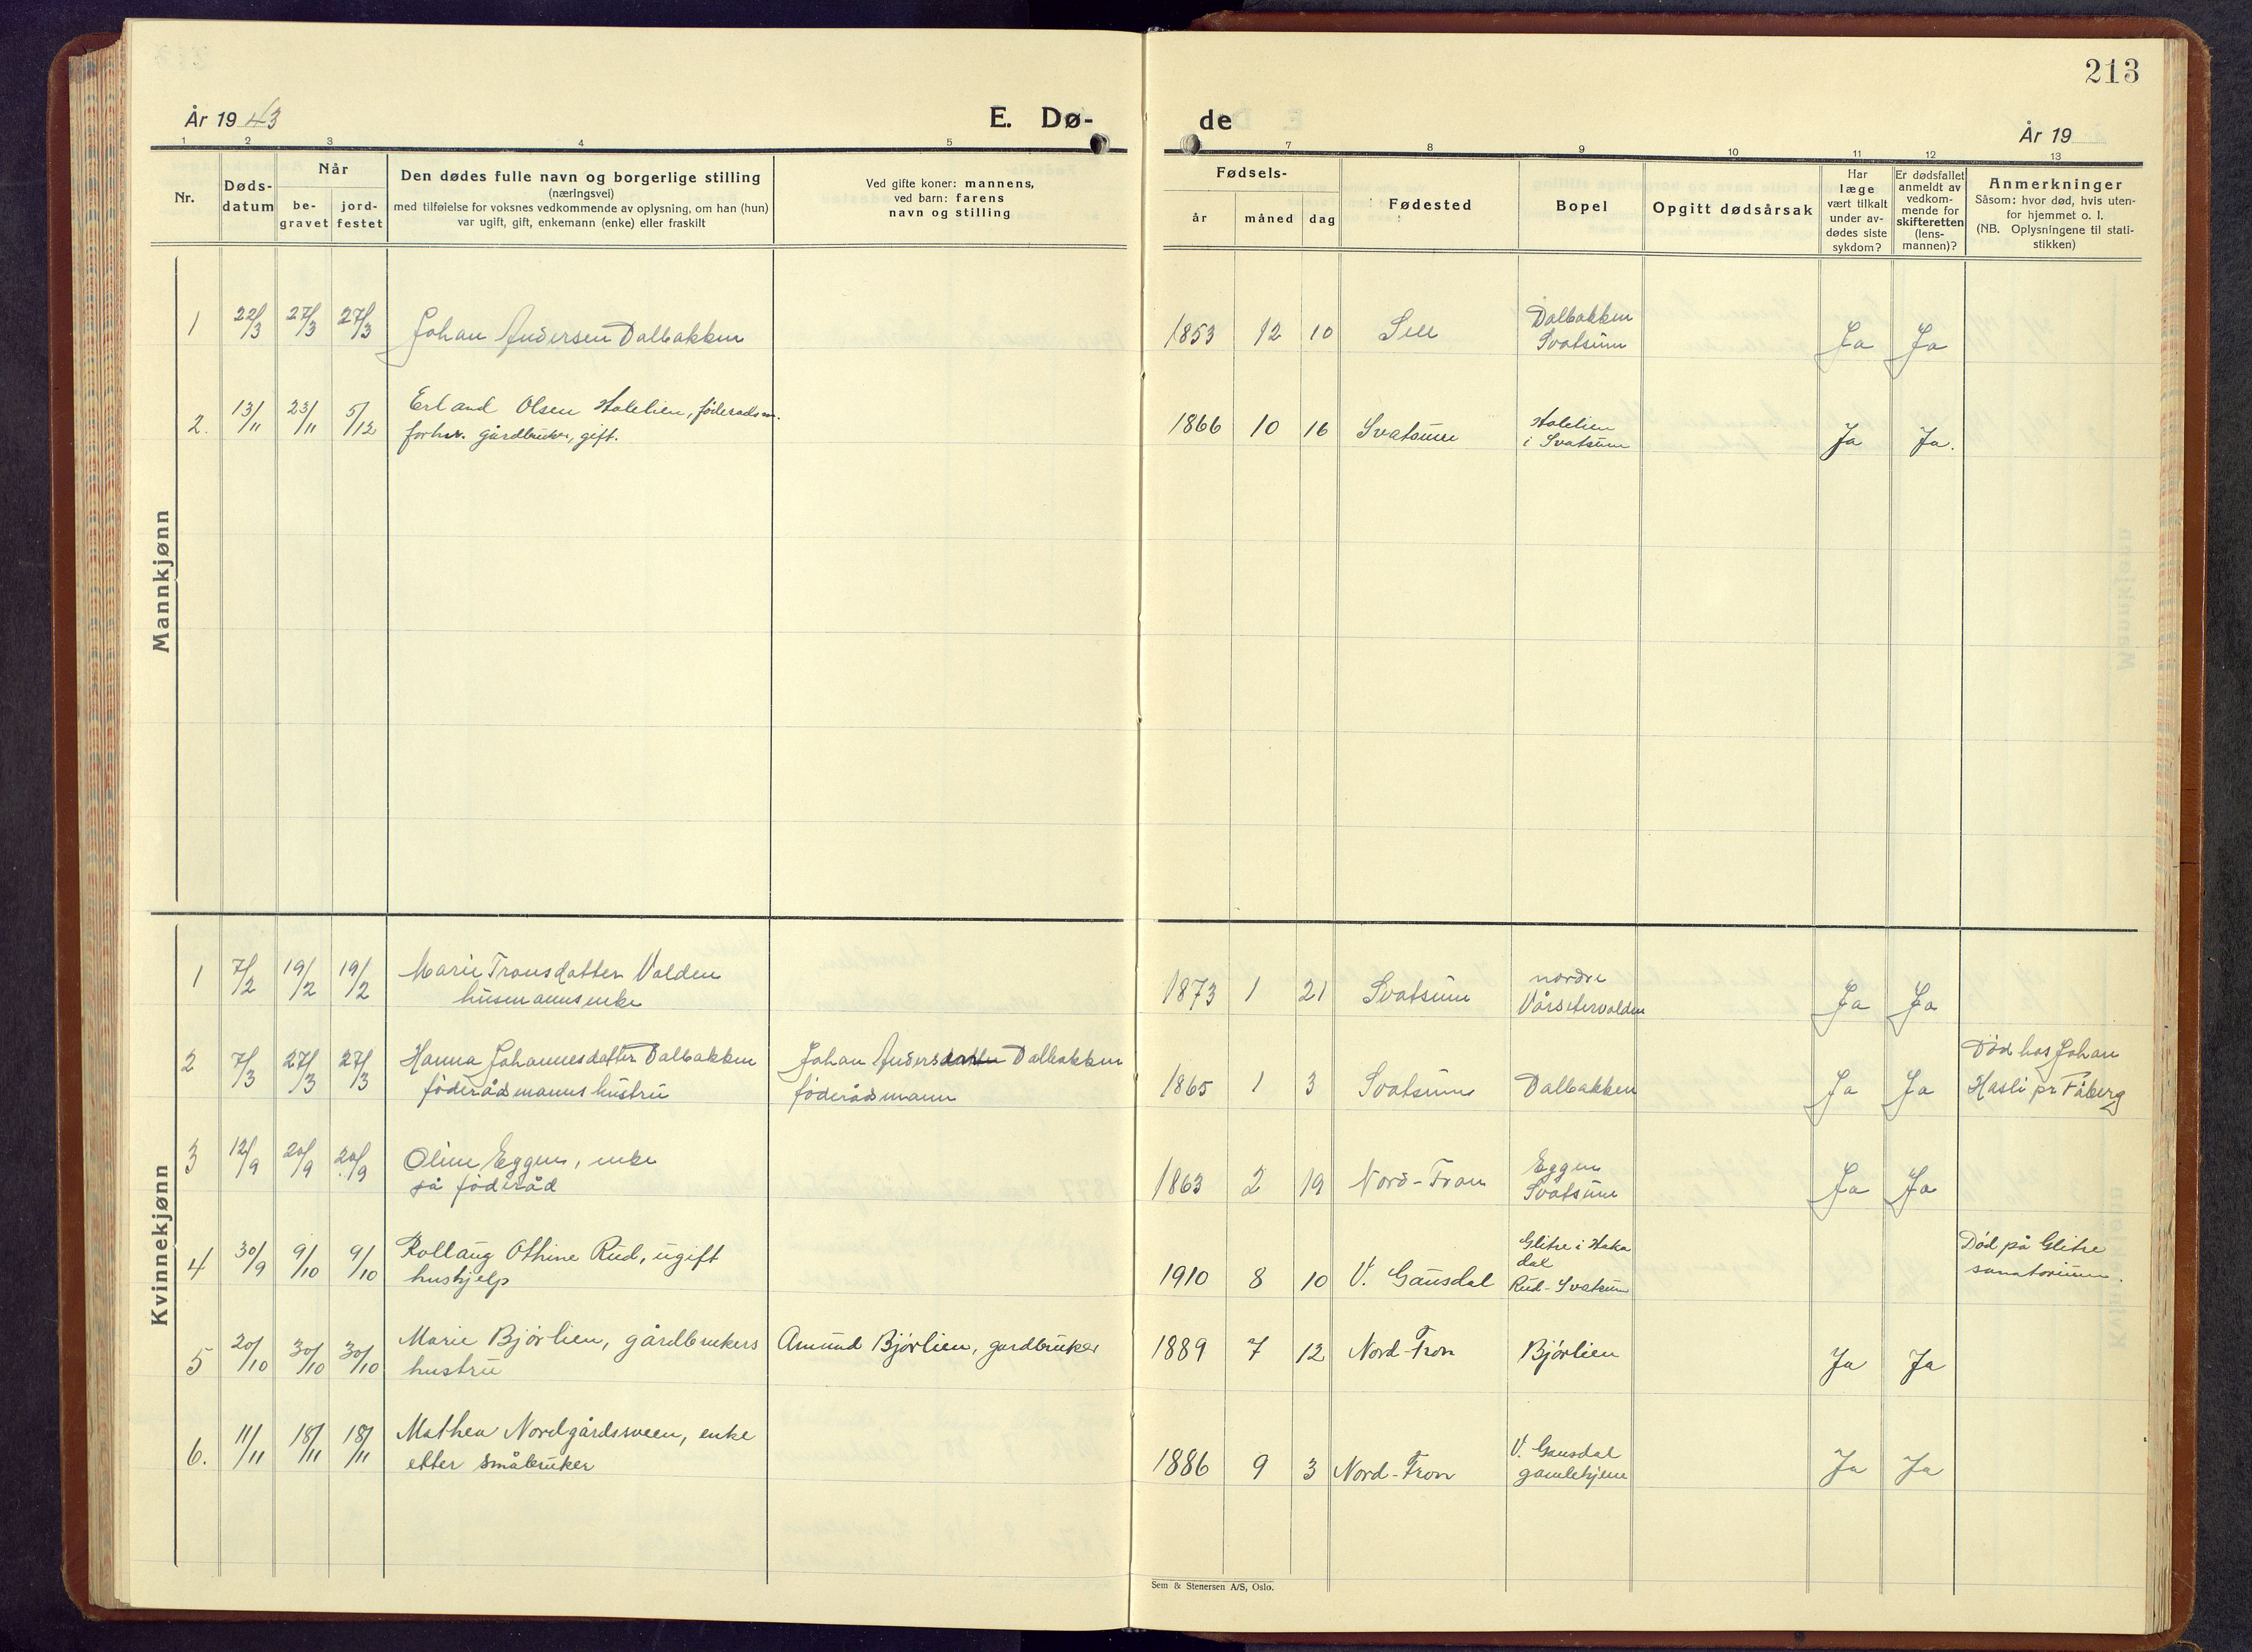 213
År 1943
E. Dø-
de
År 19
1 2 3 4 5 7 8 9 10 11 12 13
Nr.
Døds-
datum
Når
be-
gravet
jord-
festet
Den dødes fulle navn og borgerlige stilling
(næringsvei)
med tilføielse for voksnes vedkommende av oplysning, om han (hun)
var ugift, gift, enkemann (enke) eller fraskilt
Ved gifte koner: mannens,
ved barn: farens
navn og stilling
Fødsels-
år måned dag
Fødested
Bopel
Opgitt dødsårsak
Har
læge
vært tilkalt
under av-
dødes siste
sykdom?
Er dødsfallet
anmeldt av
vedkom-
mende for
skifteretten
(lens-
mannen)?
Anmerkninger
Såsom: hvor død, hvis uten-
for hjemmet o. l.
(NB. Oplysningene til stati-
stikken)
Mannkjønn
1 22/3 27/3 27/3 Johan Andersen Dalbakken 1853 12 10 Sell Dalbakken
Svatsum Ja Ja
2. 13/11 23/11 5/12 Erland Olsen Holelien, föderadsm.
forhv. gårdbruker, gift. 1866 10 16 Svatsum Holelien
i Svatsum Ja Ja.
Kvinnekjønn
1 7/2 19/2 19/2 Marie Tronsdatter Volden
husmannsenke 1873 1 21 Svatsum nordre
Vårsetervolden Ja Ja
2 7/3 27/3 27/3 Hanna Johannesdatter Dalbakken Johan Andersdatter Dalbakken
föderådsmanns hustru föderådsmann 1865 1 3 Svatsum Dalbakken Ja Ja Död hos Johan
Hasli pr Fåberg
3 12/9 20/9 20/9 Oline Eggen, enke
på föderåd 1863 2 19 Nord-Fron Eggen
Svatsum Ja Ja
4 30/9 9/10 9/10 Rollaug Othine Rud, ugift
hushjelp 1910 8 10 V. Gausdal Glitre i Haka
dal
Rud-Svatsum Død på Glitre
sanatorium.
5 20/10 30/10 30/10 Marie Bjørlien, gårdbrukers
hustru Amund Bjørlien, gardbruker 1889 7 12 Nord-Fron Bjørlien Ja Ja
6. 11/11 18/11 18/11 Mathea Nordgårdsveen, enke
etter småbruker 1886 9 3 Nord-Fron V. Gausdal
gamlehjem Ja Ja
Sem & Stenersen A/S, Oslo.